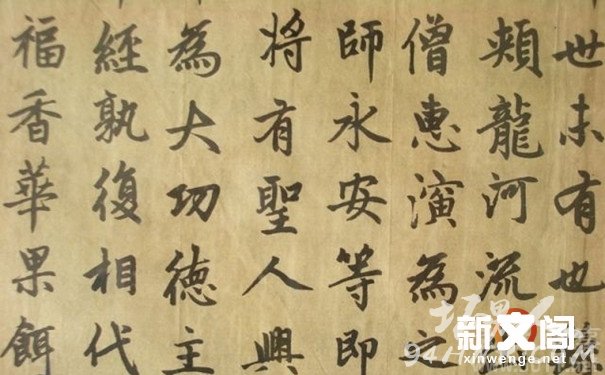 世未有也
頰龍河流
僧惠演為之
師永安等即
將有聖人興
為大功德主
經孰復相代
福香華果餌
新文阁
xinwenge.net